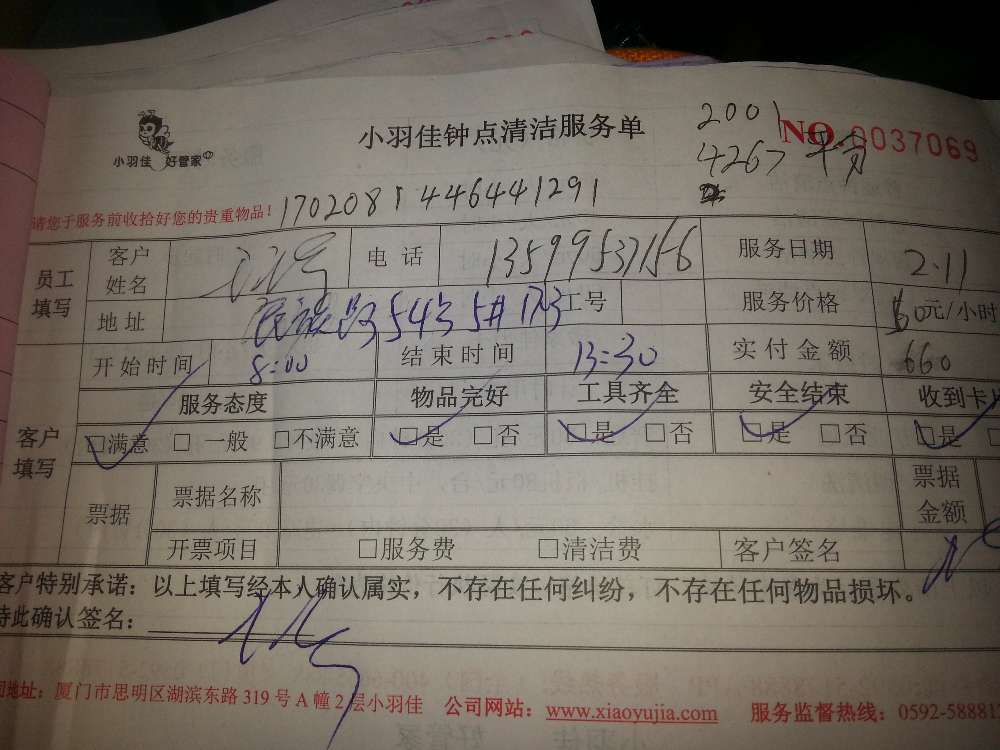 小羽佳 好管家
小羽佳钟点清洁服务单
2001
NO. 0037069
4267 平方
请您于服务前收拾好您的贵重物品！
1702081446441291
员工填写 客户姓名 电 话 13599537156 服务日期 2.11
地 址 54号 5# 1703 工号 服务价格 60元/小时
客户填写 开始时间 8:00 结束时间 13:30 实付金额 660
服务态度 物品完好 工具齐全 安全结束 收到卡
□满意 □ 一般 □不满意 □是 □否 □是 □否 □是 □否 □是
票据 票据名称 票据金额
开票项目 □服务费 □清洁费 客户签名
客户特别承诺：以上填写经本人确认属实，不存在任何纠纷，不存在任何物品损坏。
特此确认签名：
地址：厦门市思明区湖滨东路 319 号 A 幢 2 层小羽佳 公司网站：www.xiaoyujia.com 服务监督热线：0592-58881